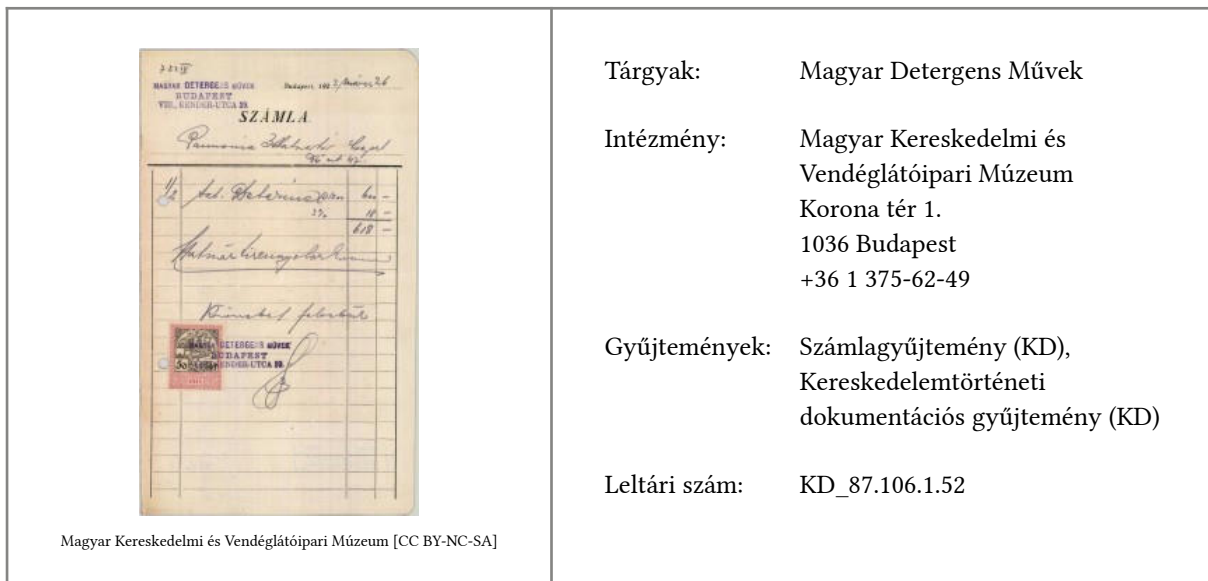 MAGYAR DETERGENS MŰVEK
BUDAPEST
VIII., KENDER-UTCA 29.
Budapest, 192
SZÁMLA
Pannonia
1/2
60 -
18 -
618 -
MAGYAR DETERGENS MŰVEK
BUDAPEST
KENDER-UTCA 29.
50
Magyar Kereskedelmi és Vendéglátóipari Múzeum [CC BY-NC-SA]
Tárgyak: Magyar Detergens Művek
Intézmény: Magyar Kereskedelmi és
Vendéglátóipari Múzeum
Korona tér 1.
1036 Budapest
+36 1 375-62-49
Gyűjtemények: Számlagyűjtemény (KD),
Kereskedelemtörténeti
dokumentációs gyűjtemény (KD)
Leltári szám: KD_87.106.1.52